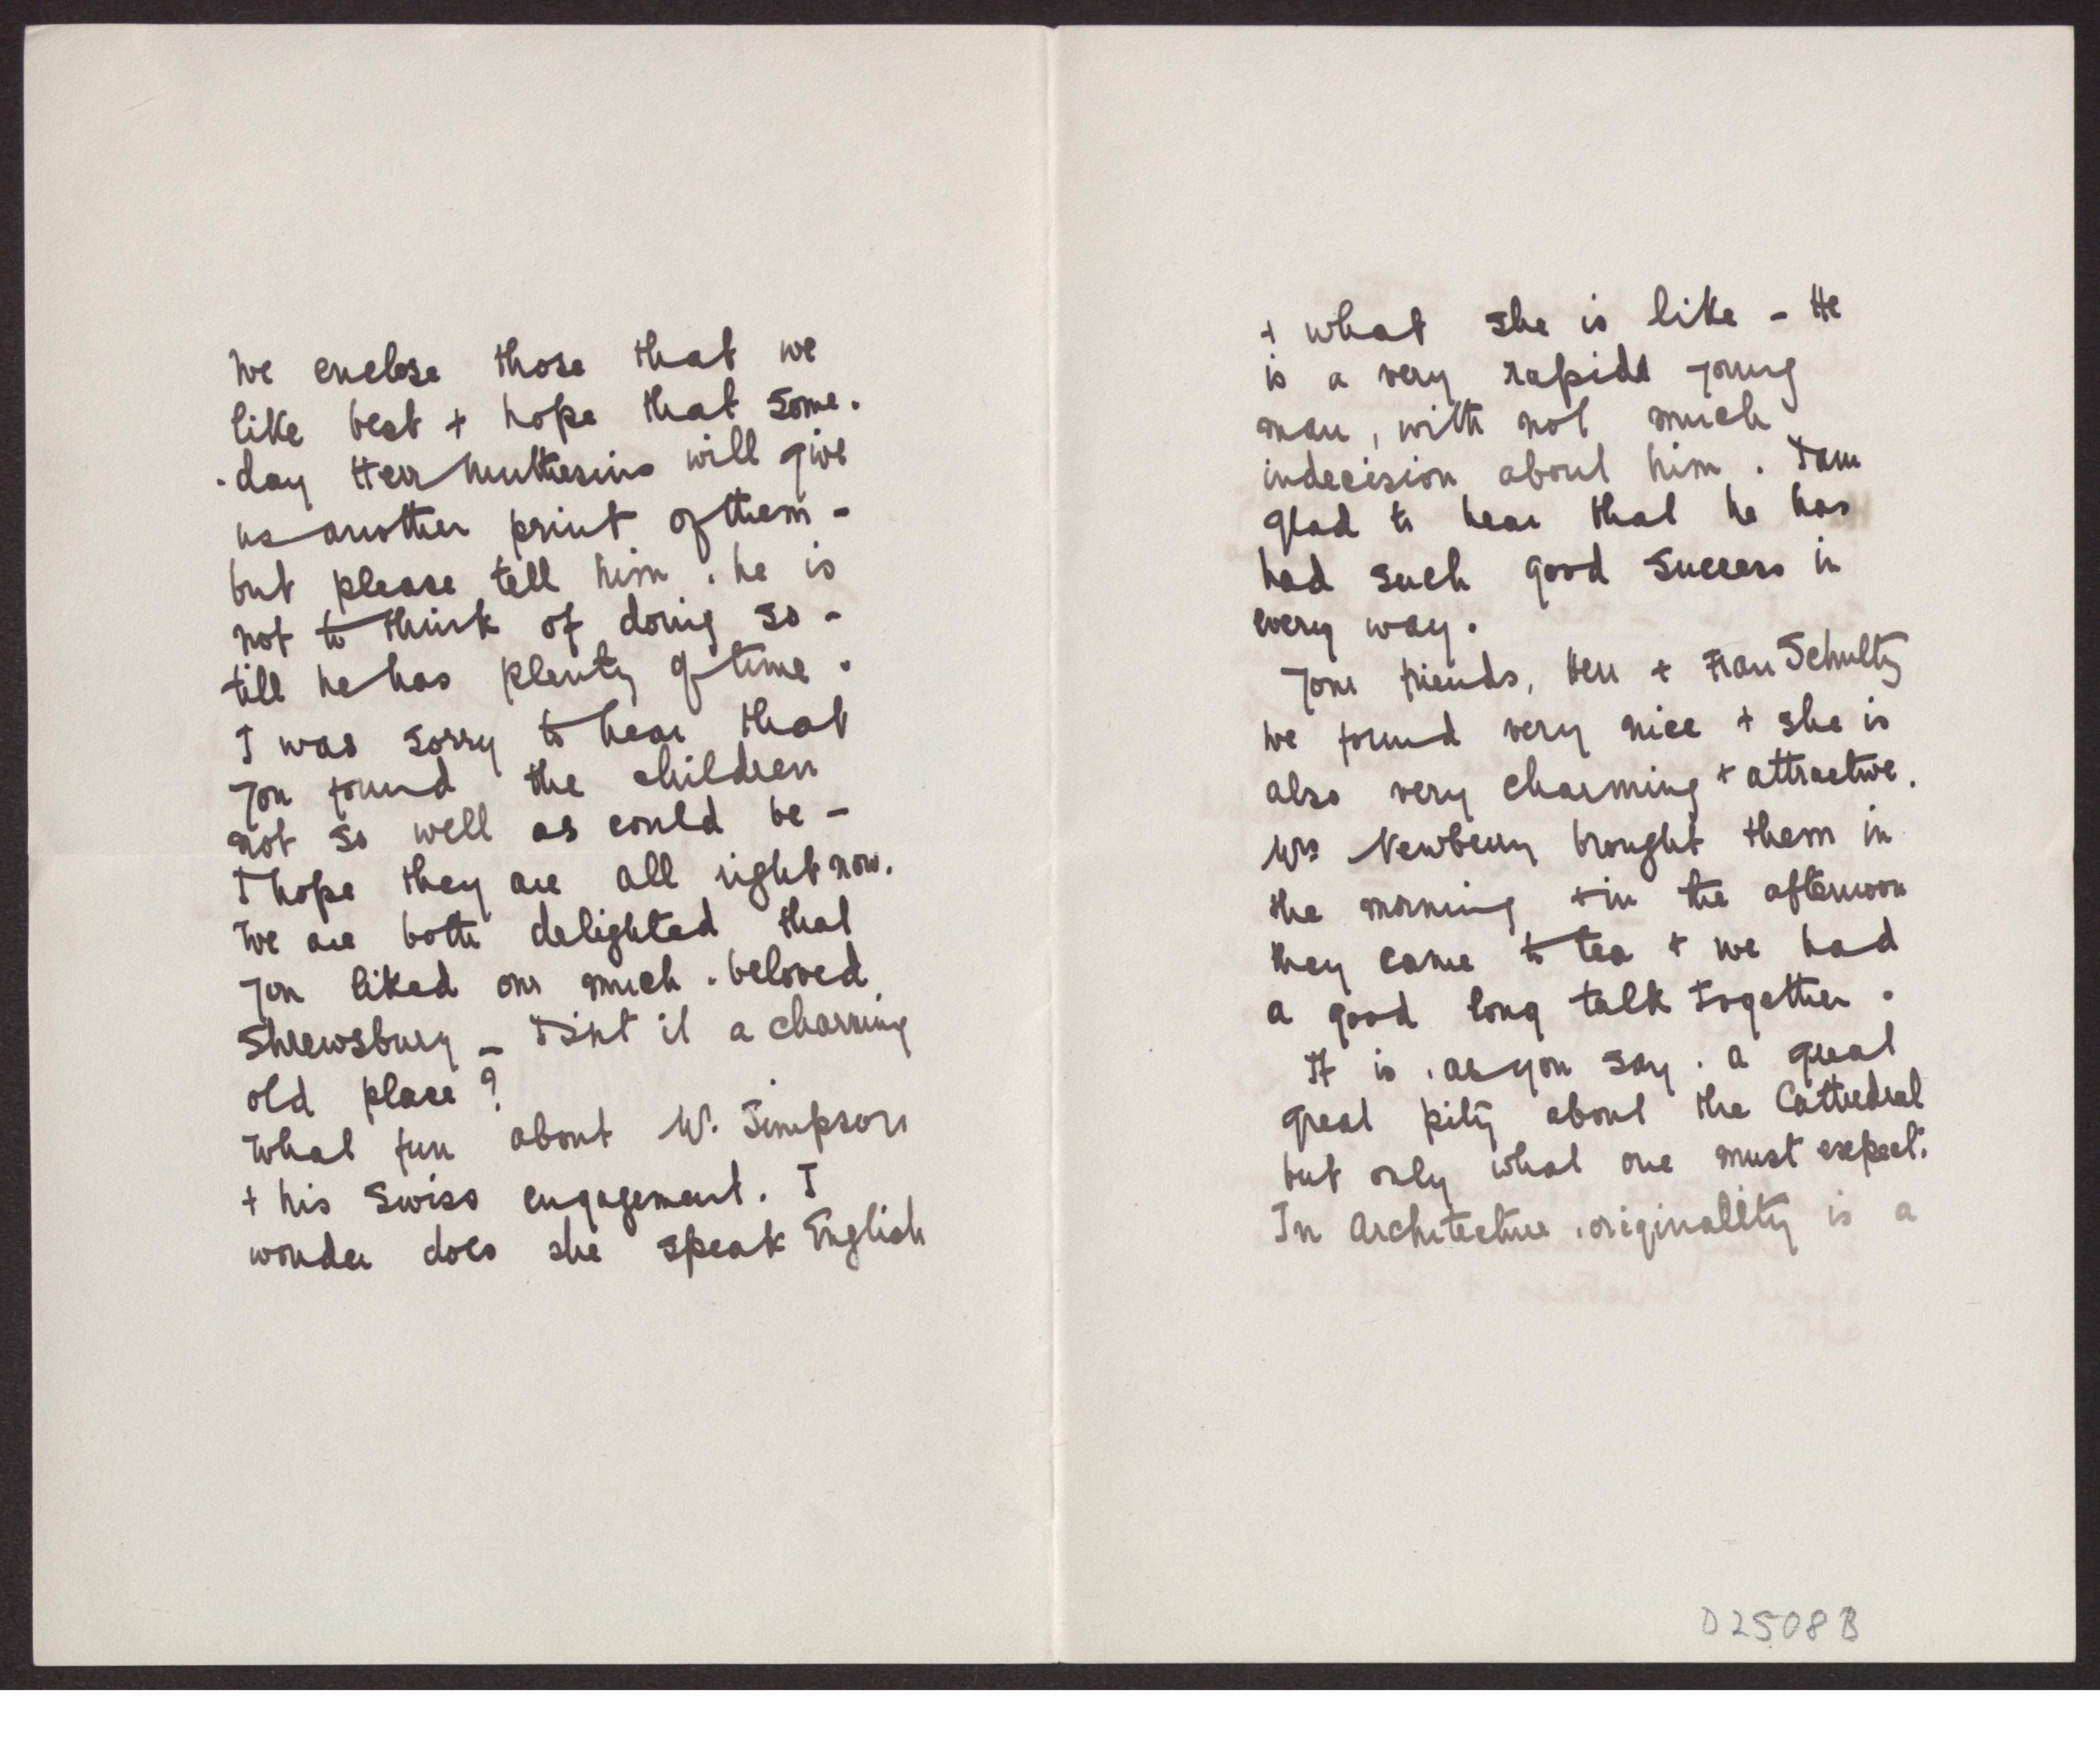 We enclose those that we
like best + hope that some.
.day Herr Muthesius will give
us another print of them -
but please tell him . he is
not to think of doing so -
till he has plenty of time .
I was sorry to hear that
you found the children
not so well as could be -
I hope they are all right now.
We are both delighted that
you liked our much . beloved
Shrewsbury - Isn't it a charming
old place?
What fun about W. Simpson
+ his Swiss engagement. I
wonder does she speak English
+ what she is like - He
is a very rapide young
man, with not much
indecision about him . I am
glad to hear that he has
had such good success in
every way.
Your friends, Herr + Frau Schultz
we found very nice + she is
also very charming + attractive.
Mrs Newbery brought them in
the morning + in the afternoon
they came to tea + we had
a good long talk together .
It is . as you say . a great
great pity about the Cathedral
but only what one must expect.
In Architecture . originality is a
D2508B